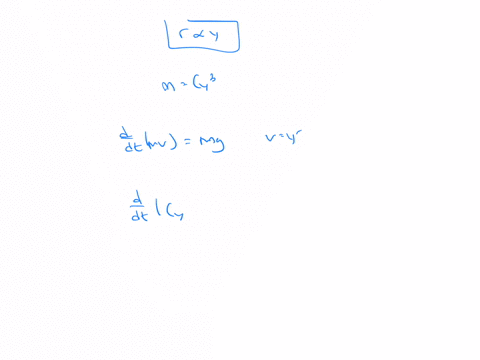 r ∝ y
m = Cy³
d/dt (mv) = mg v = y'
d/dt ( Cy